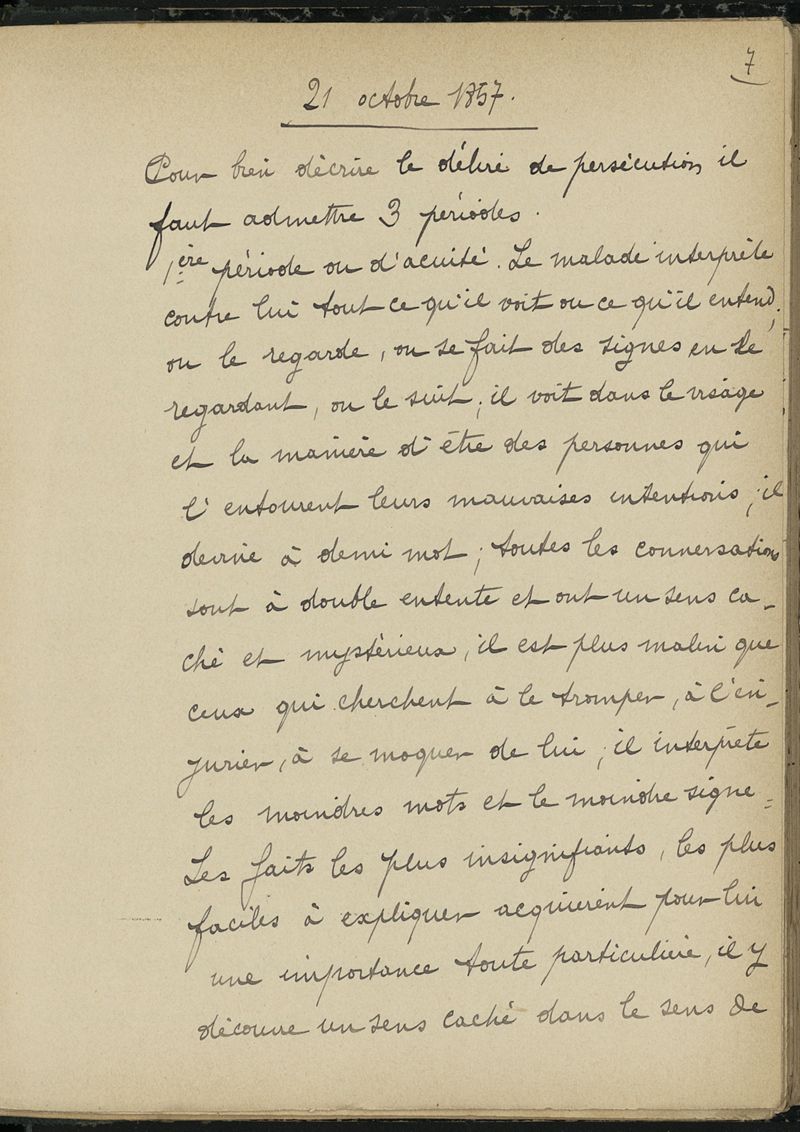 7
21 octobre 1857.
Pour bien décrire le délire de persécution il
faut admettre 3 périodes.
1ère période ou d'acuité. Le malade interprète
contre lui tout ce qu'il voit ou ce qu'il entend,
on le regarde, on se fait des signes en le
regardant, on le suit; il voit dans le visage
et la manière d'être des personnes qui
l'entourent leurs mauvaises intentions; il
devine à demi mot; toutes les conversations
sont à double entente et ont un sens ca-
ché et mystérieux, il est plus malin que
ceux qui cherchent à le tromper, à l'in-
jurier, à se moquer de lui; il interprète
les moindres mots et le moindre signe.
Les faits les plus insignifiants, les plus
faciles à expliquer acquièrent pour lui
une importance toute particulière, il y
découvre un sens caché dans le sens de